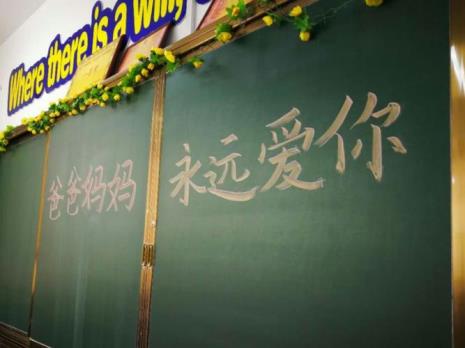 Where there is a will,
爸爸妈妈 永远爱你